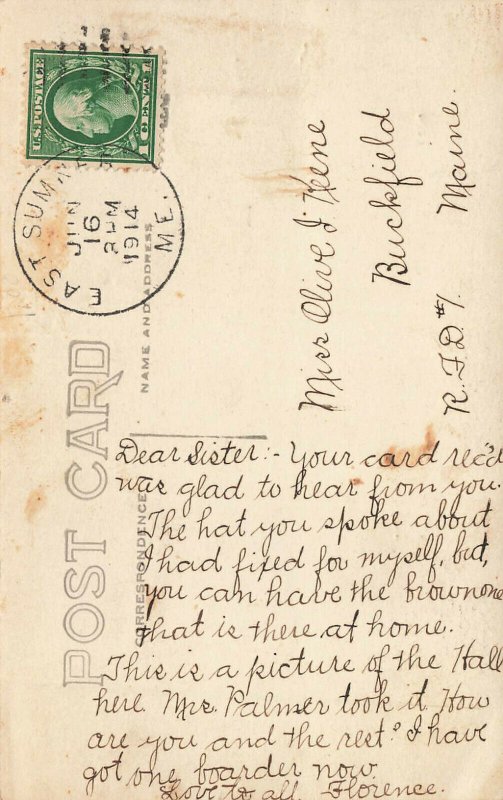 U.S. POSTAGE
1 CENT 1
EAST SUMNER
JUN
16
1914
ME.
POST CARD
NAME AND ADDRESS
CORRESPONDENCE
Miss Olive J. Keene
Buckfield
R.F.D. #1. Maine.
Dear Sister:- Your card rec'd
was glad to hear from you.
The hat you spoke about
I had fixed for myself, but,
you can have the brown one
that is there at home.
This is a picture of the Hall
here. Mrs. Palmer took it. How
are you and the rest? I have
got one boarder now.
Love to all, Florence.